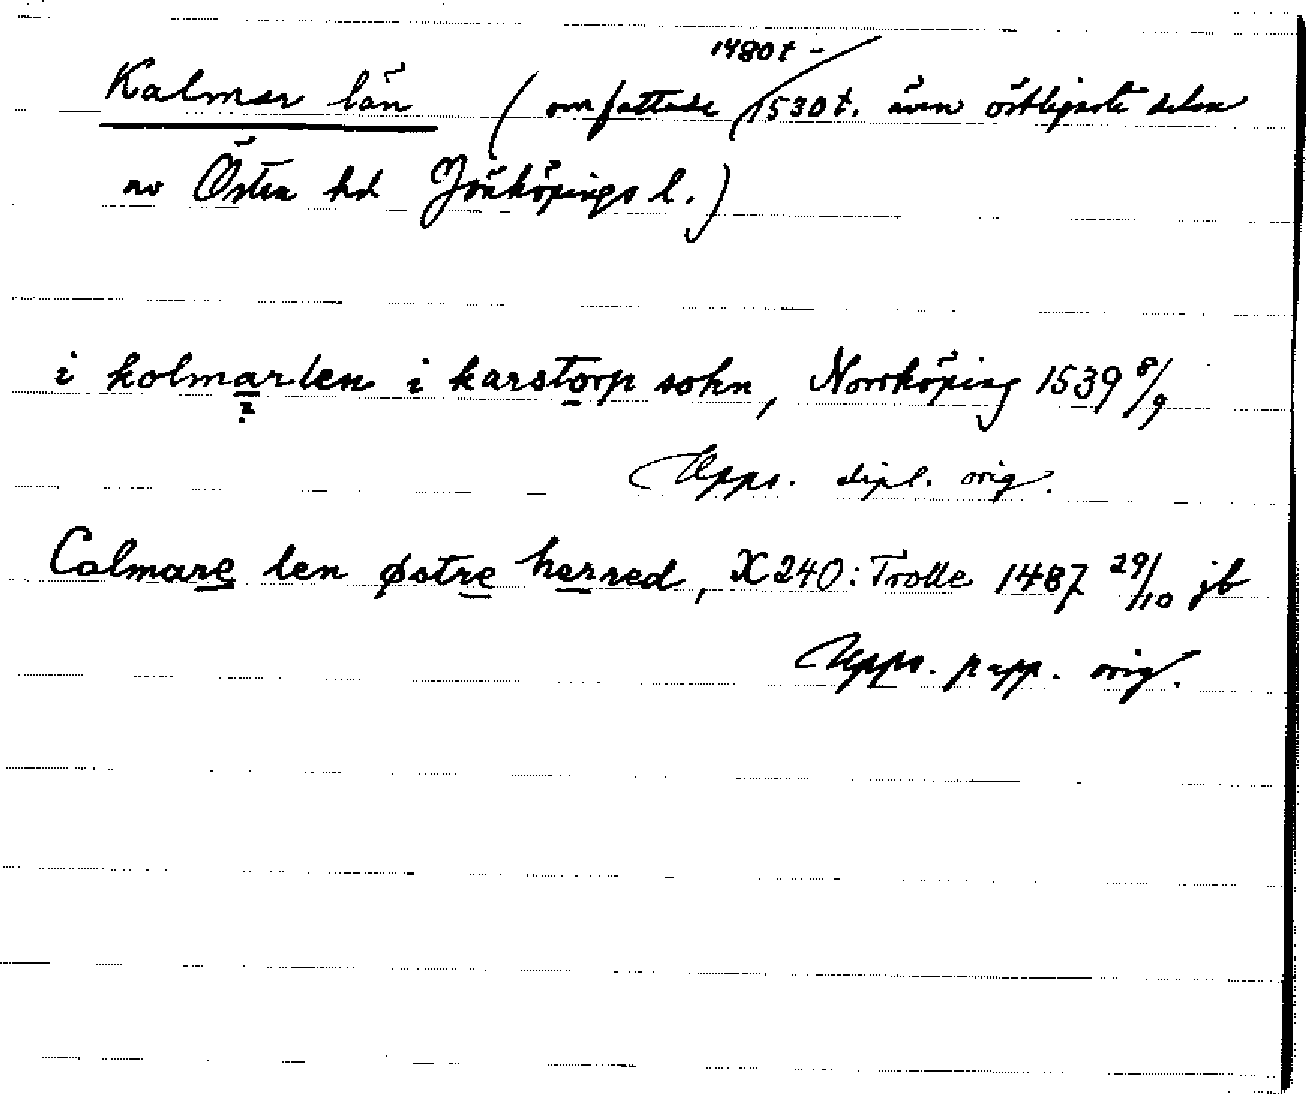 Kalmar län (omfattade 1480t - 1530t. även östligaste delen
av Östra hd Jönköpings l.)
i kolmarlen i karstorp sokn, Norrköping 1539 8/9
Upps. dipl. orig.
Calmare len østre herred, X 240: Trolle 1487 29/10 jb
Upps. papp. orig.